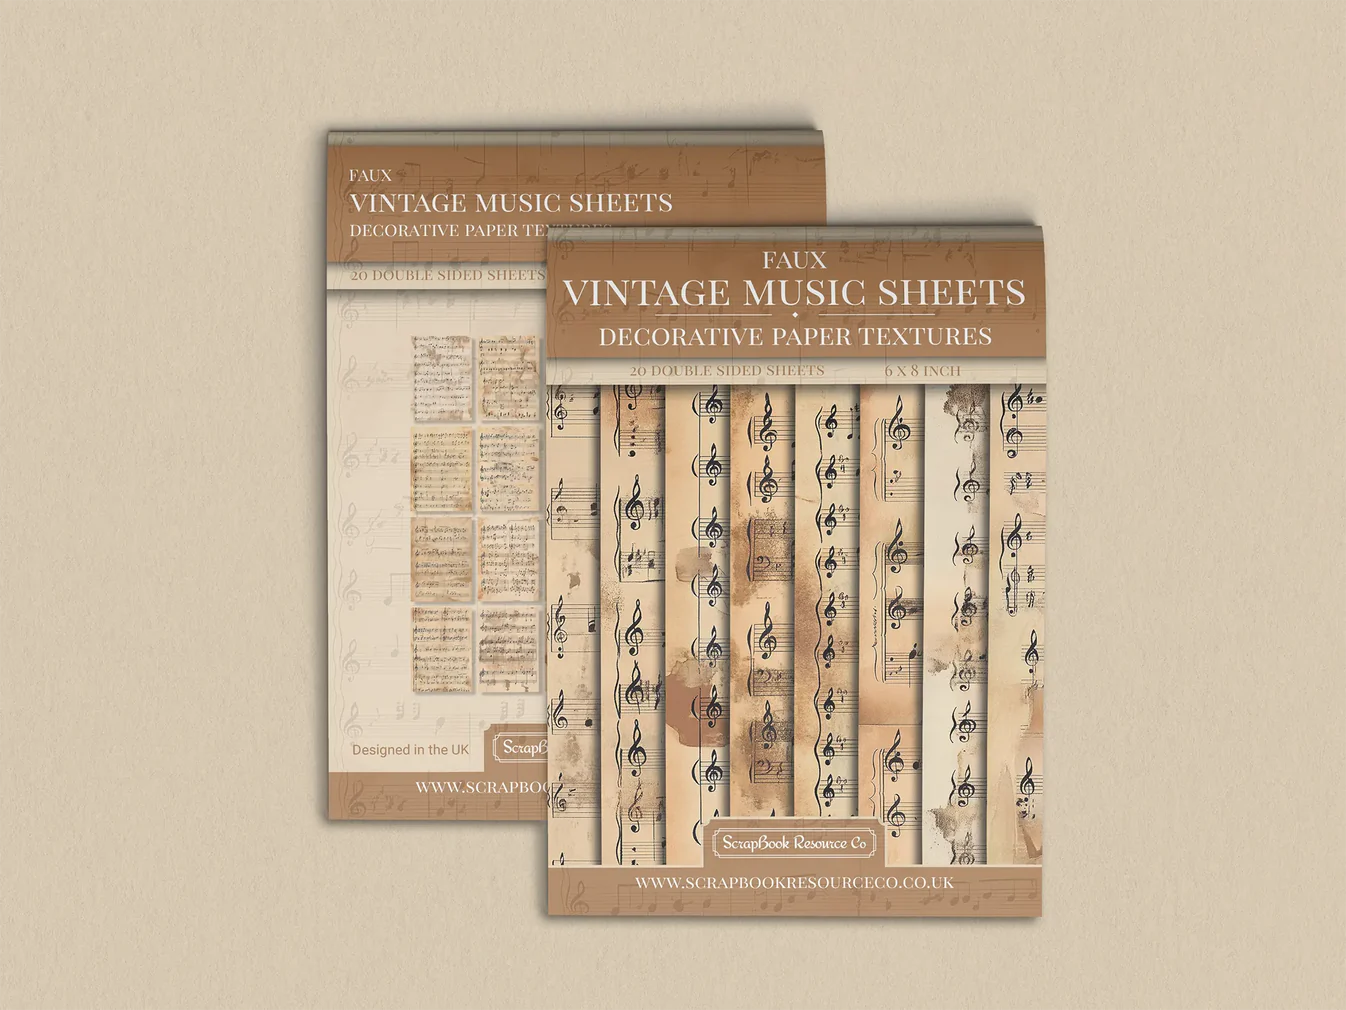 FAUX
VINTAGE MUSIC SHEETS
DECORATIVE PAPER TEXTURES
20 DOUBLE SIDED SHEETS
Designed in the UK
FAUX
VINTAGE MUSIC SHEETS
DECORATIVE PAPER TEXTURES
20 DOUBLE SIDED SHEETS 6 X 8 INCH
ScrapBook Resource Co
WWW.SCRAPBOOKRESOURCECO.CO.UK
ScrapB
WWW.SCRAPBOO